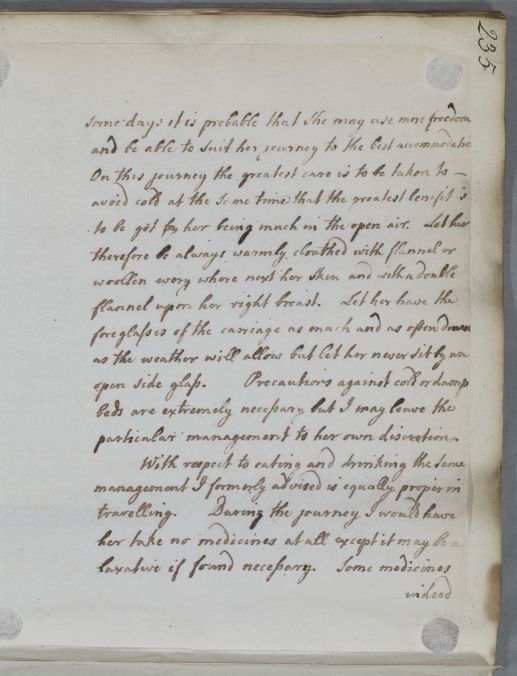 235
some days it is probable that she may use more freedom
and be able to suit her journey to the best accommodatio
On this journey the greatest care is to be taken to –
avoid cold at the same time that the greatest benefit is
to be got by her being much in the open air. Let her
therefore be always warmly cloathed with flannel or
woollen every where next her skin and with a double
flannel upon her right breast. Let her have the
foreglasses of the carriage as much and as often down
as the weather will allow but let her never sit by an
open side glass. Precautions against cold or damp
beds are extremely necessary but I may leave the
particular management to her own discretion.
With respect to eating and drinking the same
management I formerly advised is equally proper in
travelling. During the journey I would have
her take no medicines at all except it may be a
laxative if found necessary. Some medicines
indeed